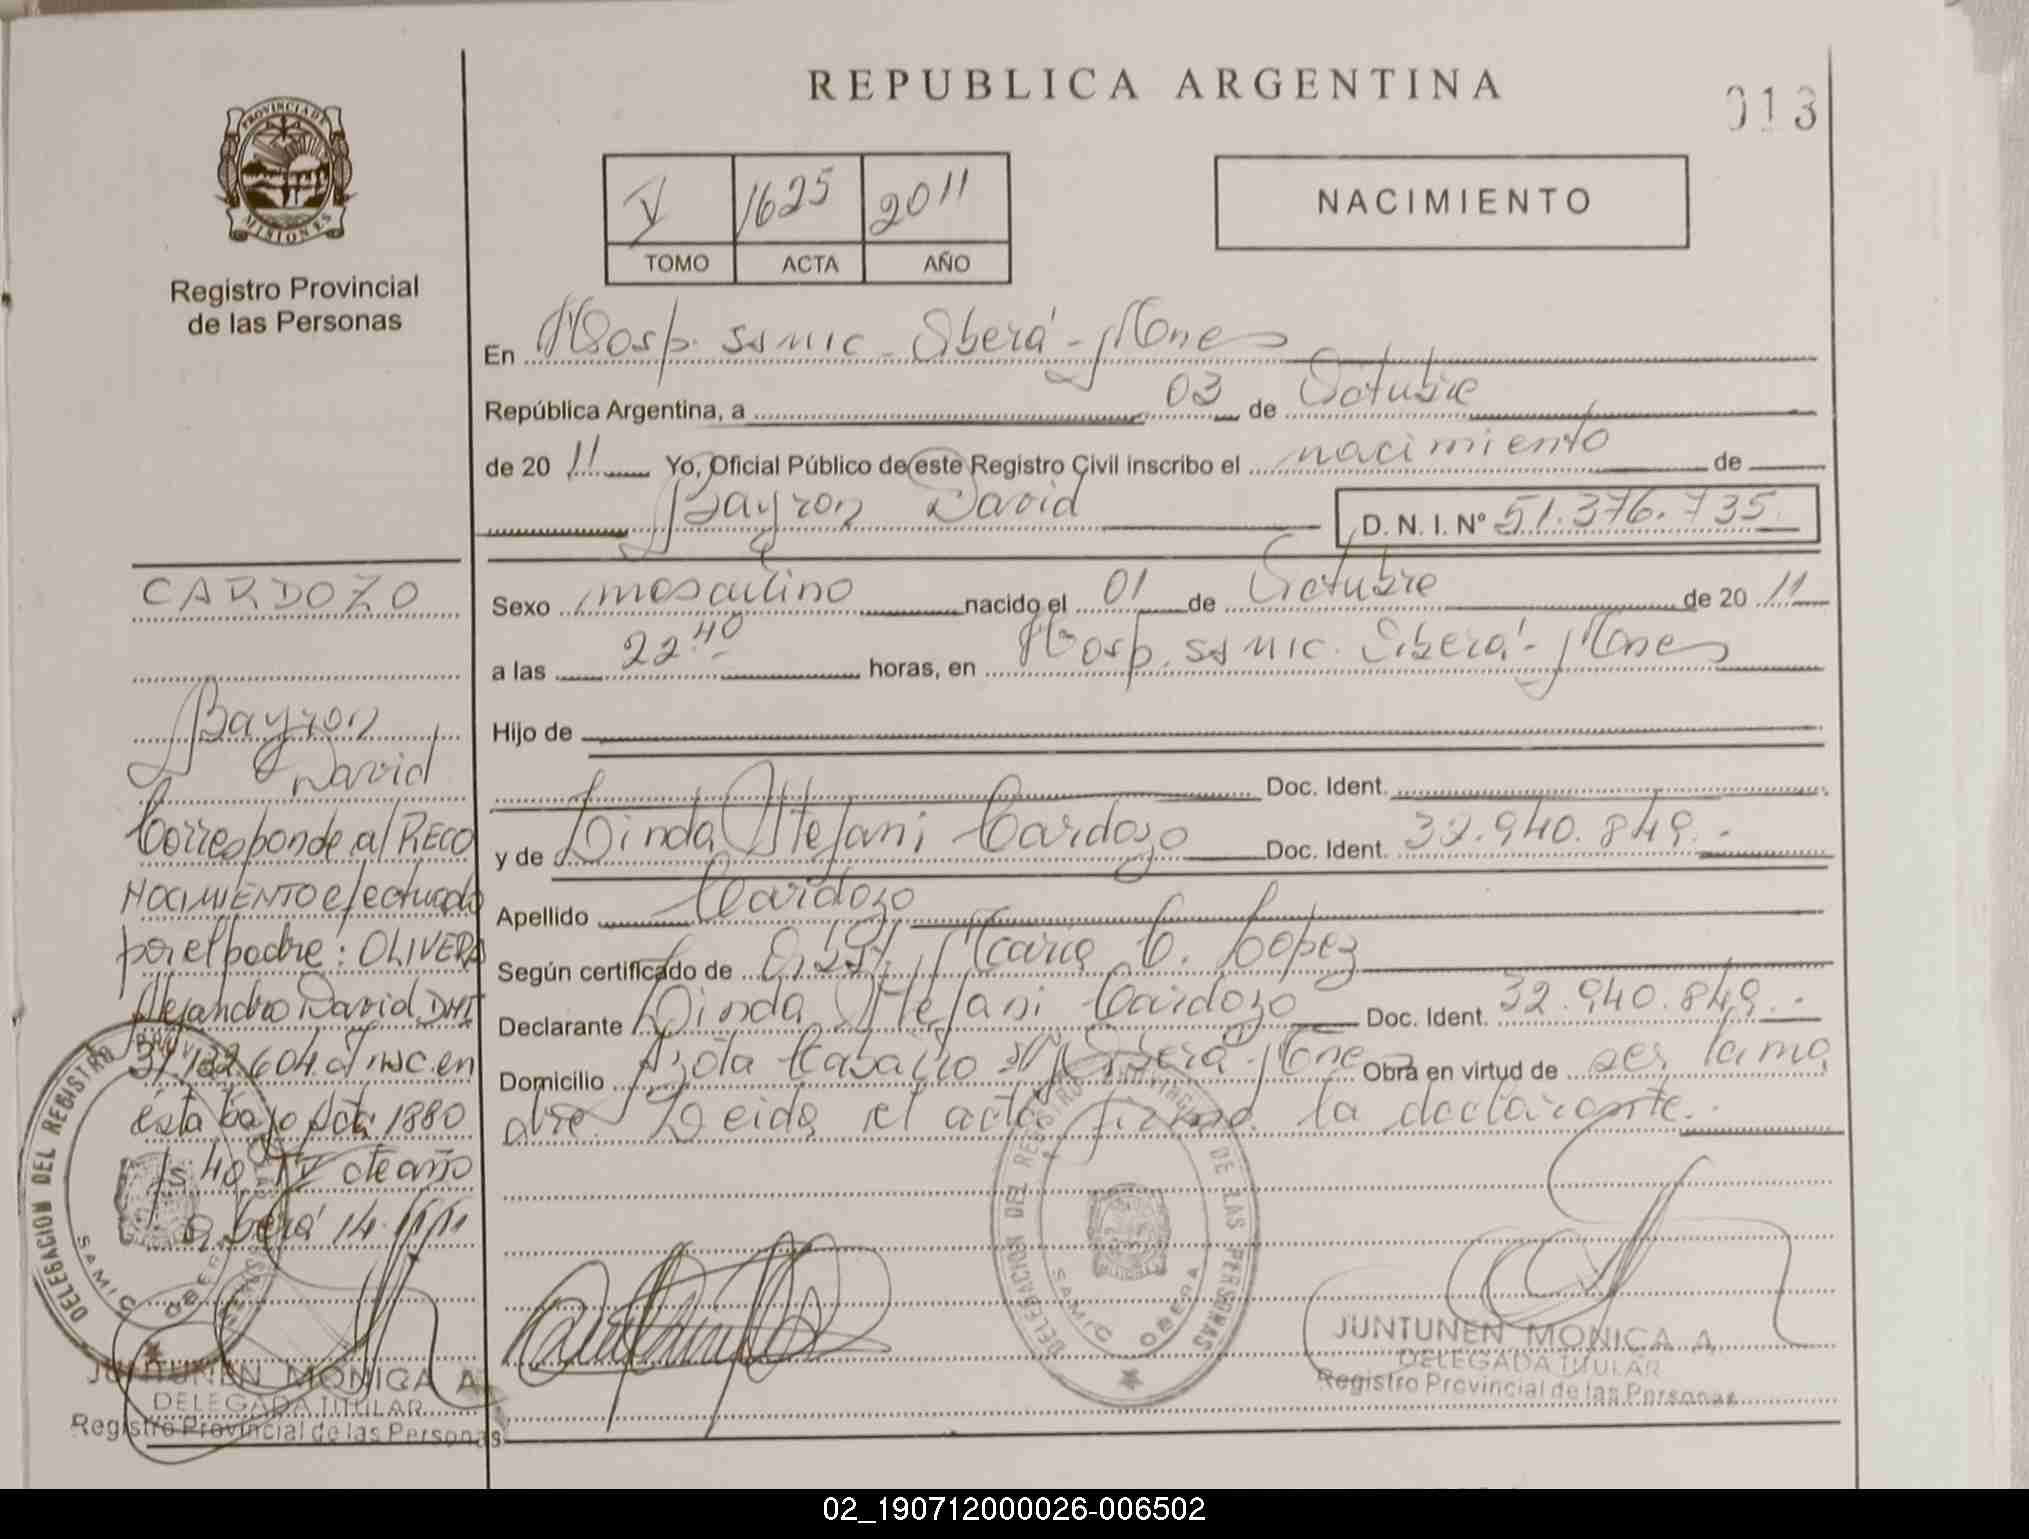 REPUBLICA ARGENTINA
013
PROVINCIA DE
MISIONES
Registro Provincial
de las Personas
V 1625 2011
TOMO ACTA AÑO
NACIMIENTO
En Hosp. SAMIC - Oberá - Mones
República Argentina, a 03 de Octubre
de 2011 Yo, Oficial Público de este Registro Civil inscribo el nacimiento de
Bayron David D. N. I. Nº 51.376.735
Sexo masculino nacido el 01 de Octubre de 2011
a las 22.40 horas, en Hosp. SAMIC. Oberá - Mones
Hijo de
Doc. Ident.
y de Linda Stefani Cardozo Doc. Ident. 32.940.849.-
Apellido Cardozo
Según certificado de Obst. Maria C. Lopez
Declarante Linda Stefani Cardozo Doc. Ident. 32.940.849.-
Domicilio Picada Caballo Oberá - Mones Obra en virtud de ser la ma
dre. Leida el acta firma la declarante.
CARDOZO
Bayron
David
Corresponde al RECO
NOCIMIENTO efectuado
por el padre: OLIVERA
Alejandro David DNI
Insc. en
ésta bajo Acta 1880
fs. 40 TV de año
Oberá 14.11.11
DELEGACION DEL REGISTRO PROVINCIAL DE LAS PERSONAS
SAMIC OBERA
JUNTUNEN MONICA A.
DELEGADA TITULAR
Registro Provincial de las Personas
DELEGACION DEL REGISTRO PROVINCIAL DE LAS PERSONAS
SAMIC OBERA
JUNTUNEN MONICA A.
DELEGADA TITULAR
Registro Provincial de las Personas
02_190712000026-006502